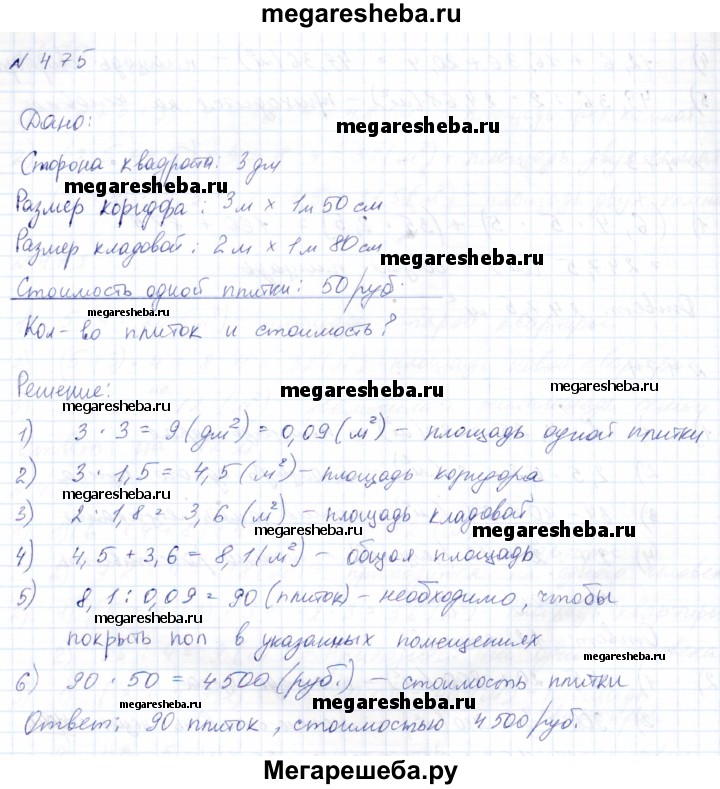 megaresheba.ru
№ 475
Дано:
megaresheba.ru
Сторона квадрата: 3 дм
megaresheba.ru
Размер коридора: 3 м x 1 м 50 см
Размер кладовой: 2 м x 1 м 80 см
megaresheba.ru
Стоимость одной плитки: 50 руб.
megaresheba.ru
Кол-во плиток и стоимость?
Решение:
megaresheba.ru
megaresheba.ru
megaresheba.ru
1) 3 · 3 = 9 (дм²) = 0,09 (м²) – площадь одной плитки
2) 3 · 1,5 = 4,5 (м²) – площадь коридора
megaresheba.ru
3) 2 · 1,8 = 3,6 (м²) – площадь кладовой
megaresheba.ru
megaresheba.ru
4) 4,5 + 3,6 = 8,1 (м²) – общая площадь
5) 8,1 : 0,09 = 90 (плиток) – необходимо, чтобы
megaresheba.ru
покрыть пол в указанных помещениях
megaresheba.ru
6) 90 · 50 = 4500 (руб.) – стоимость плитки
megaresheba.ru
megaresheba.ru
Ответ: 90 плиток, стоимостью 4500 руб.
megaresheba.ru
Мегарешеба.ру